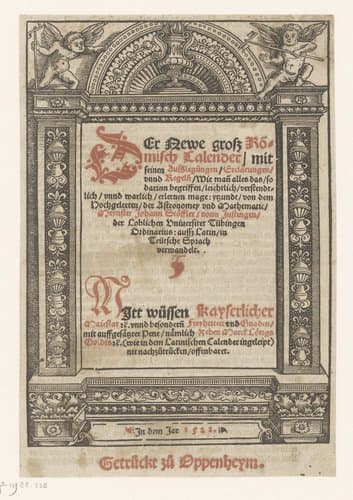 DEr Newe groß Rö-
misch Calender / mit
seinen Außlegungen / Erclärungen /
vnnd Regeln / Wie mañ alles das / so
darinn begriffen / leichtlich / verstende-
lich / vnnd warlich / erlernen mage: yzunde / von dem
Hochgelerten / der Astronomey vnd Mathematic /
Meynster Johann Stöffler / vonn Justingen /
der Loblichen Vniuersitet Tübingen
Ordinarius: ausß Latin / in
Teütsche Sprach
verwandelt.
Mitt wüssen Kayserlicher
Maiestat ꝛc. vnnd besondern Freyheiten vnd Gnaden /
mit auffgesätzter Pene / nämlich Zehen Marck Lötigs
Goldts ꝛc. (wie in dem Latinischen Calender ingeleipt)
nit nachzütrücken / offenbaret.
In dem Jar 1522.
Getrückt zü Oppenheym.